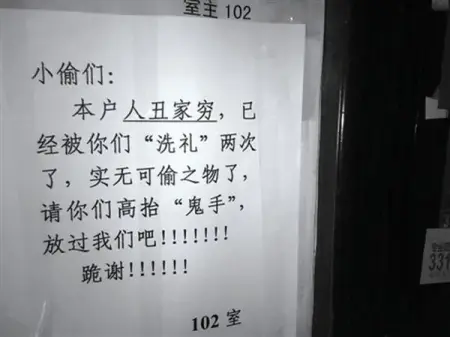 室主 102
小偷们：
本户人丑家穷，已
经被你们“洗礼”两次
了，实无可偷之物了，
请你们高抬“鬼手”，
放过我们吧!!!!!!!
跪谢!!!!!!
102 室
331